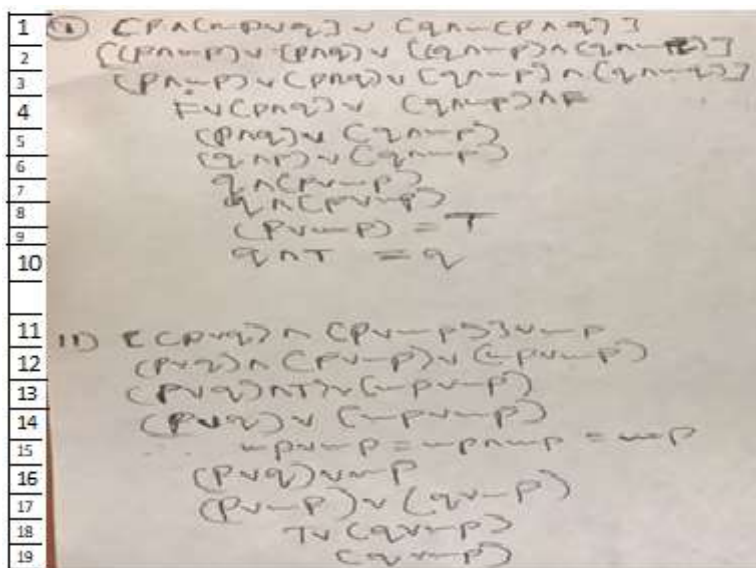 1 ① [P∧(~p∨q] ∨ (q∧~(p∧q)]
2 [(p∧~p)∨(p∧q)∨[(q∧~p)∧(q∧~
3 (p∧~p)∨(p∧q)∨[q∧~p)∧(q∧~q)]
4 F∨(p∧q)∨ (q∧~p)∧F
5 (p∧q)∨(q∧~p)
6 (q∧p)∨(q∧~p)
7 q∧(p∨~p)
8 q∧(p∨~p)
9 (p∨~p) = T
10 q∧T = q
11 11) [(p∨q)∧(p∨~p)]∨~p
12 (p∨q)∧(p∨~p)∨(~p∨~p)
13 (p∨q)∧T)∨(~p∨~p)
14 (p∨q)∨(~p∨~p)
15 ~p∨~p = ~p∧~p = ~p
16 (p∨q)∨~p
17 (p∨~p)∨(q∨~p)
18 T∨(q∨~p)
19 (q∨~p)